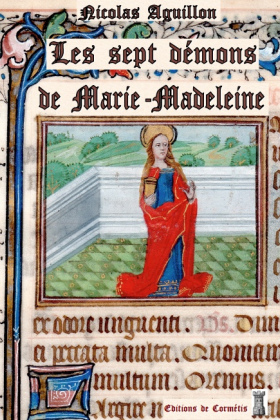 Nicolas Aguillon
Les sept démons
de Marie-Madeleine
ex odore unguenti.
peccata multa. Quoniam
multum Oremus
Largire
Editions de Cormétis